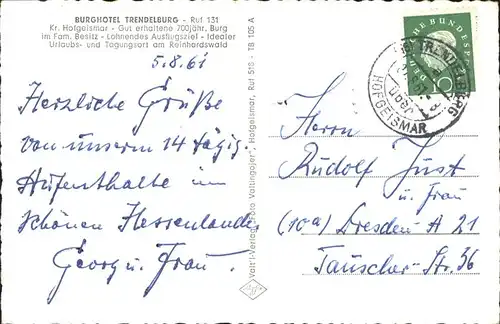 BURGHOTEL TRENDELBURG - Ruf 131
Kr. Hofgeismar - Gut erhaltene 700jähr. Burg
im Fam. Besitz - Lohnendes Ausflugsziel - Idealer
Urlaubs- und Tagungsort am Reinhardswald
5.8.61
Herzliche Grüße
von unserm 14 tägig.
Aufenthalte im
schönen Hessenlande.
Georg u. Frau.
Hofgeismar, Ruf 518 - TB 105 A
DEUTSCHE BUNDESPOST
TRENDELBURG
über
HOFGEISMAR
Herrn
Rudolf Just
u. Frau
(10a) Dresden A 21
Tauscher-Str. 36